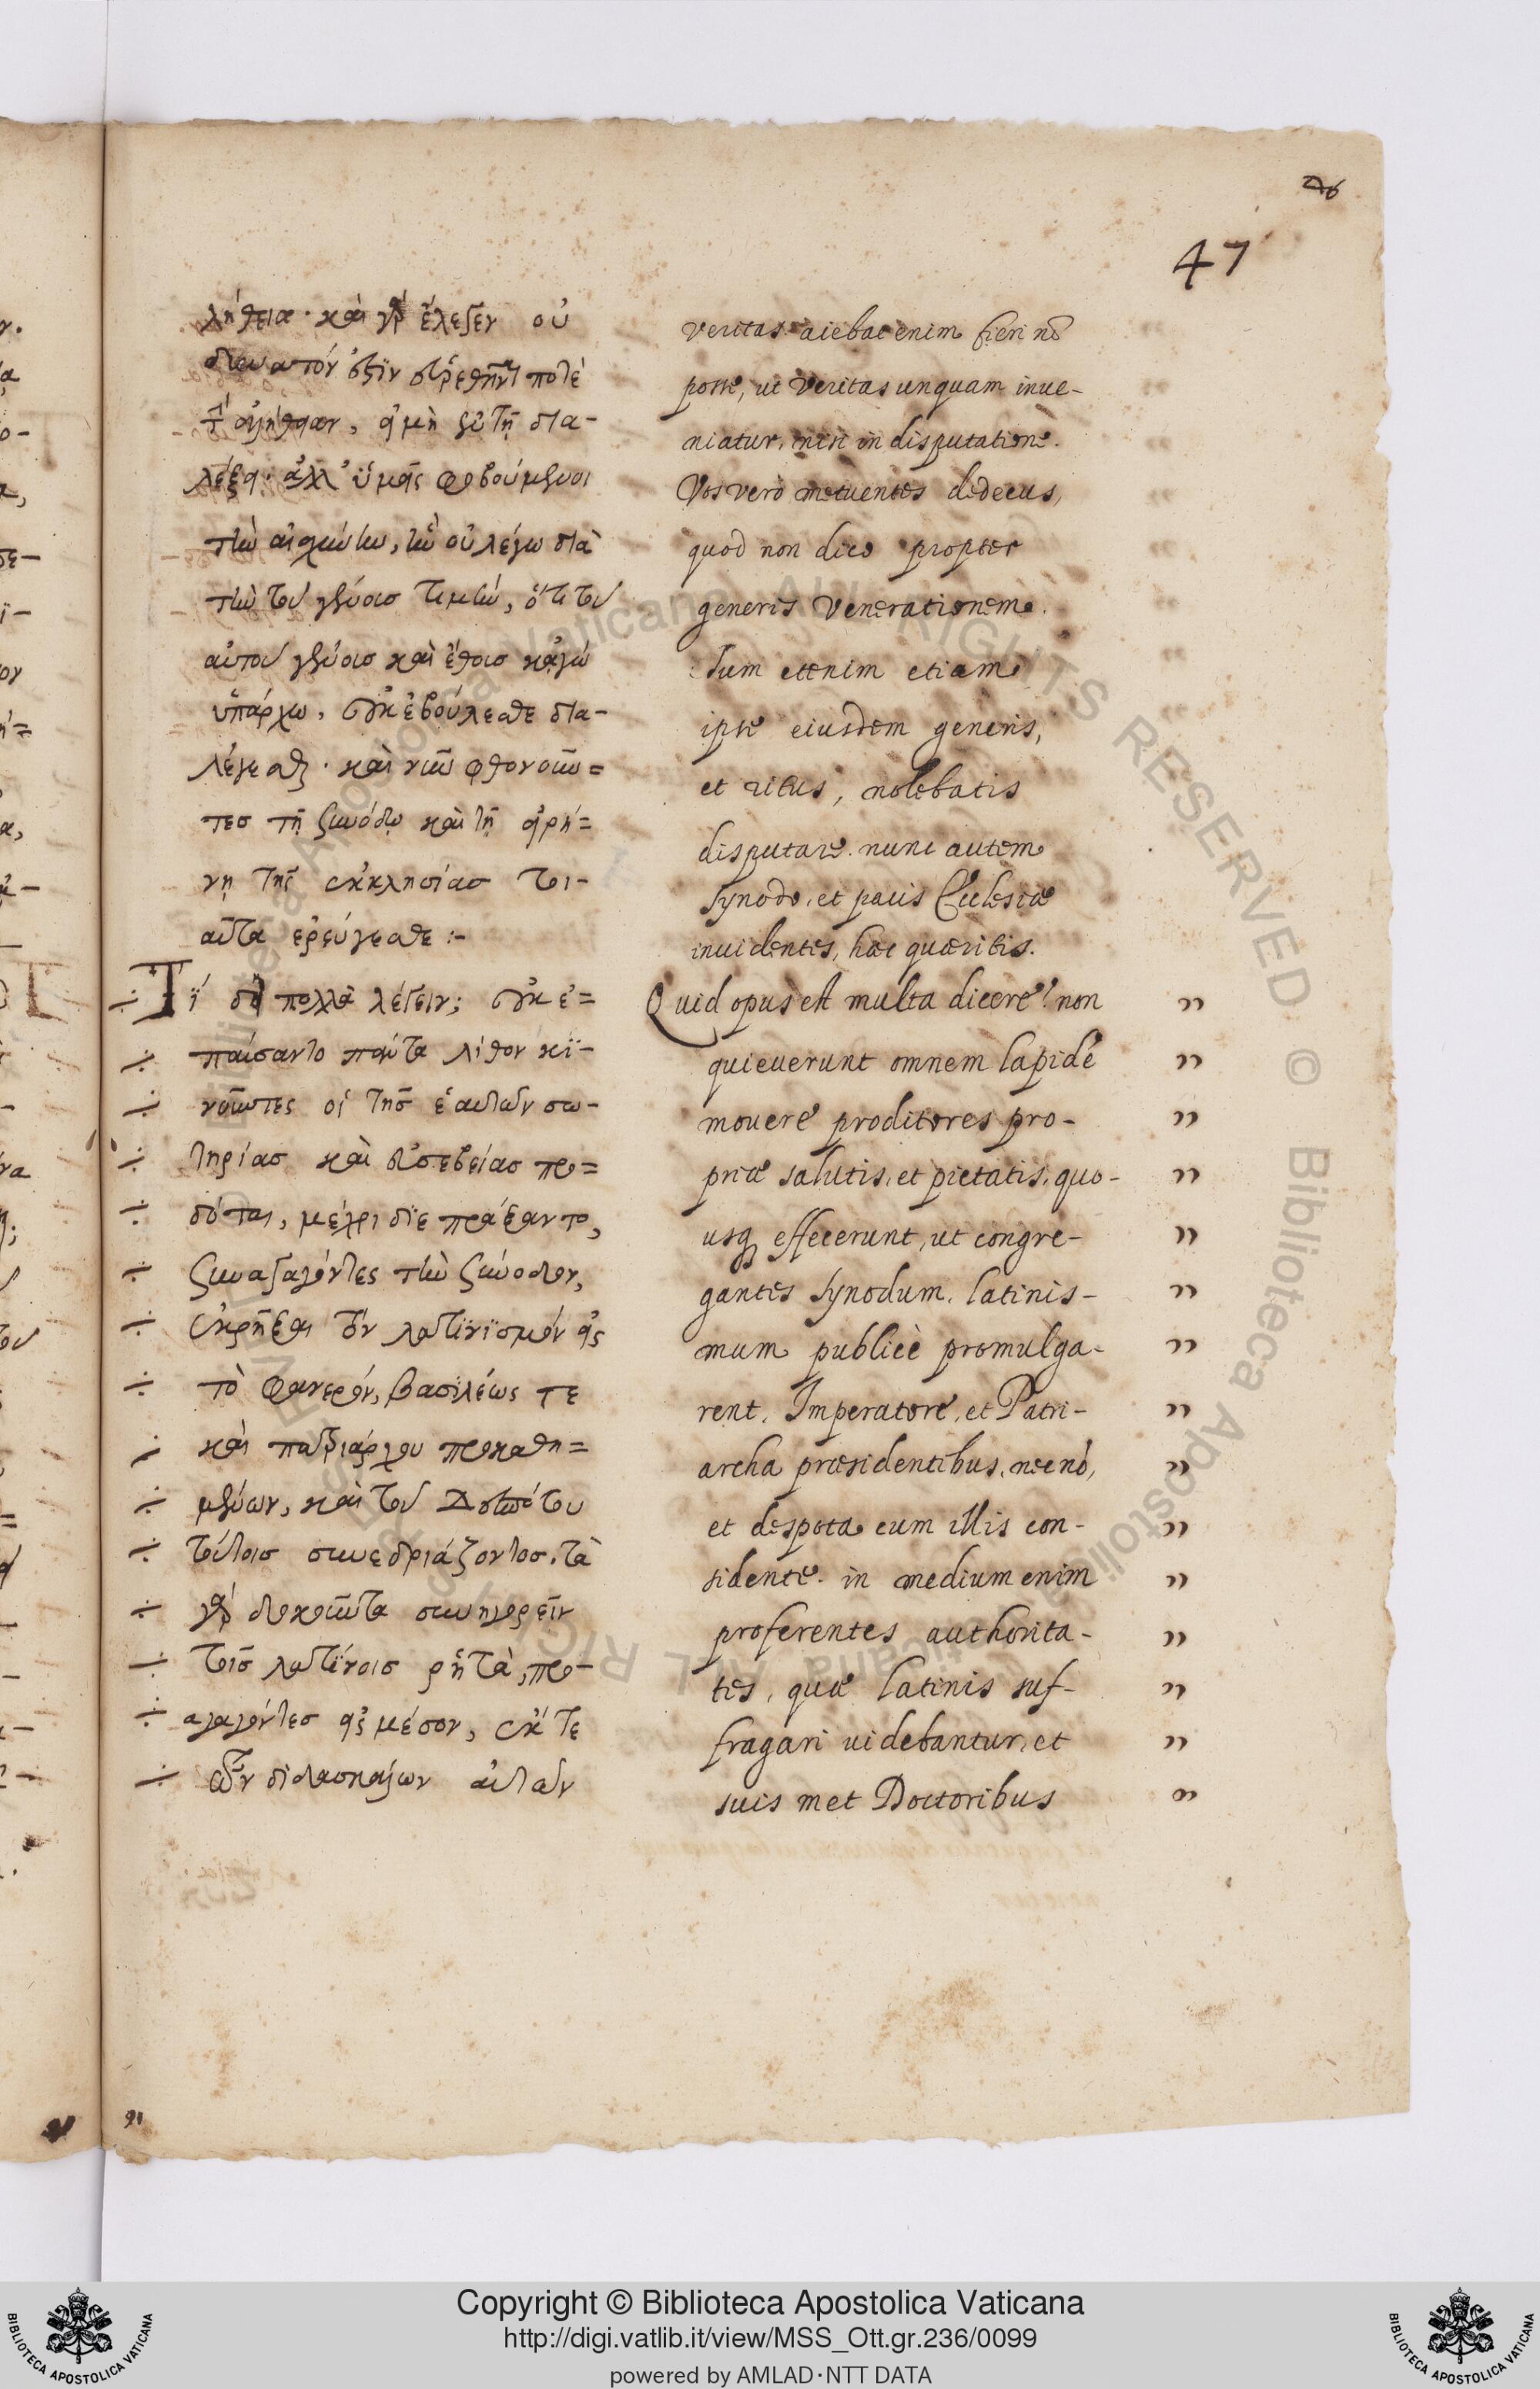 47
λήθεια· καὶ γὰρ ἔλεξεν οὐ
δυνατόν ἐστιν εὑρεθῆναί ποτε
τὴν ἀλήθειαν, εἰ μὴ ἐν τῇ δια-
λέξει· ἀλλ' ὑμεῖς φοβούμενοι
τὴν αἰσχύνην, ἣν οὐ λέγω διὰ
τὴν τοῦ γένους τιμήν, ὅτι τοῦ
αὐτοῦ γένους καὶ ἔθους κἀγὼ
ὑπάρχω, οὐκ ἐβούλεσθε δια-
λέγεσθαι· καὶ νῦν φθονοῦν=
τες τῇ συνόδῳ καὶ τῇ εἰρή=
νῃ τῆς ἐκκλησίας τοι-
αῦτα ἐρεύγεσθε :-
Τί δεῖ πολλὰ λέγειν; οὐκ ἐ=
παύσαντο πάντα λίθον κι-
νοῦντες οἱ τῆς ἑαυτῶν σω-
τηρίας καὶ εὐσεβείας προ=
δόται, μέχρι διεπράξαντο,
συναγαγόντες τὴν σύνοδον,
ἐκρῆξαι τὸν λατινισμὸν εἰς
τὸ φανερόν, βασιλέως τε
καὶ πατριάρχου προκαθη=
μένων, καὶ τοῦ Δεσπότου
τούτοις συνεδριάζοντος. τὰ
γὰρ δοκοῦντα συνηγορεῖν
τοῖς λατίνοις ῥητὰ, προ-
αγαγόντες εἰς μέσον, ἔκ τε
τῶν διδασκάλων αὐτῶν
veritas. aiebat enim fieri nō
posse, ut veritas unquam inue-
niatur, nisi in disputatione.
Vos vero metuentes dedecus,
quod non dico propter
generis venerationem.
sum etenim etiam
ipse eiusdem generis,
et ritus, nolebatis
disputare. nunc autem
synodo, et pacis Ecclesiæ
inuidentes, hæc quæritis.
Quid opus est multa dicere? non
quieuerunt omnem lapidē
mouere proditores pro-
priæ salutis, et pietatis, quo-
usq; effecerunt, ut congre-
gantes synodum, latinis-
mum publicè promulga-
rent, Imperatore, et Patri-
archa præsidentibus, necnō,
et despota cum illis con-
sidente. in medium enim
proferentes authorita-
tes, quæ latinis suf-
fragari uidebantur, et
suis met Doctoribus
Copyright © Biblioteca Apostolica Vaticana
http://digi.vatlib.it/view/MSS_Ott.gr.236/0099
powered by AMLAD·NTT DATA